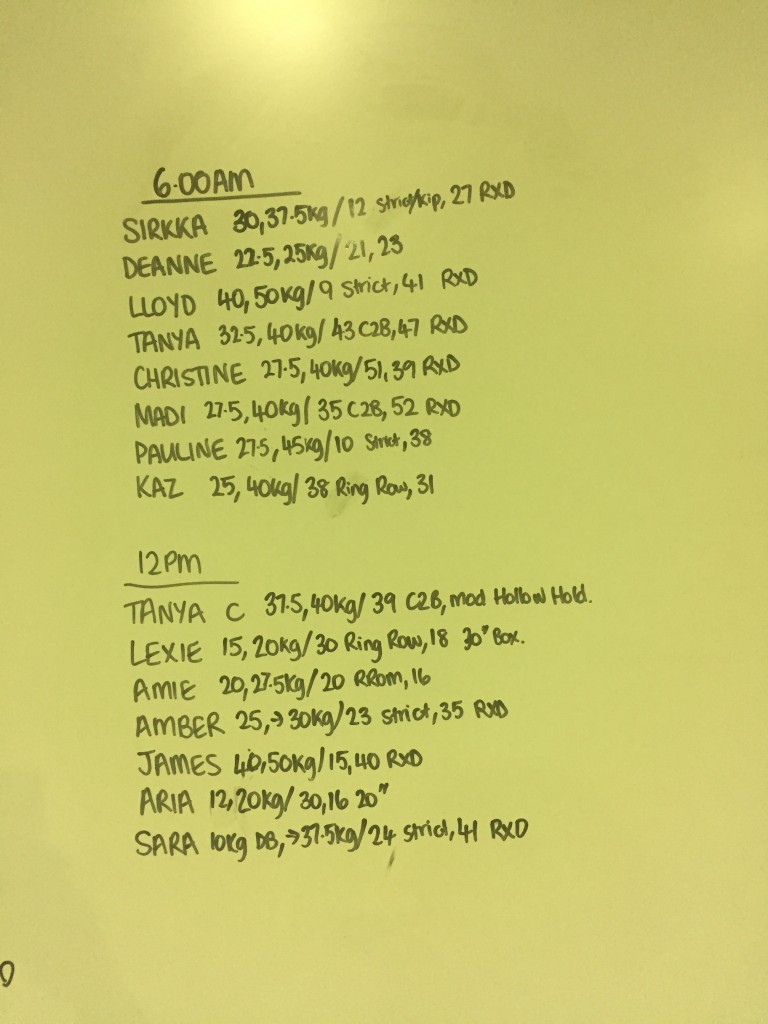 6.00AM
SIRKKA 30, 37.5kg/12 strict/kip, 27 RXD
DEANNE 22.5, 25kg/21, 23
LLOYD 40, 50kg/9 Strict, 41 RXD
TANYA 32.5, 40kg/43 C2B, 47 RXD
CHRISTINE 27.5, 40kg/51, 39 RXD
MADI 27.5, 40kg/35 C2B, 52 RXD
PAULINE 27.5, 45kg/10 Strict, 38
KAZ 25, 40kg/38 Ring Row, 31
12PM
TANYA C 37.5, 40kg/39 C2B, mod Hollow Hold.
LEXIE 15, 20kg/30 Ring Row, 18 30" Box.
AMIE 20, 27.5kg/20 RRom, 16
AMBER 25, →30kg/23 strict, 35 RXD
JAMES 40, 50kg/15, 40 RXD
ARIA 12, 20kg/30, 16 20"
SARA 10kg DB, →37.5kg/24 strict, 41 RXD